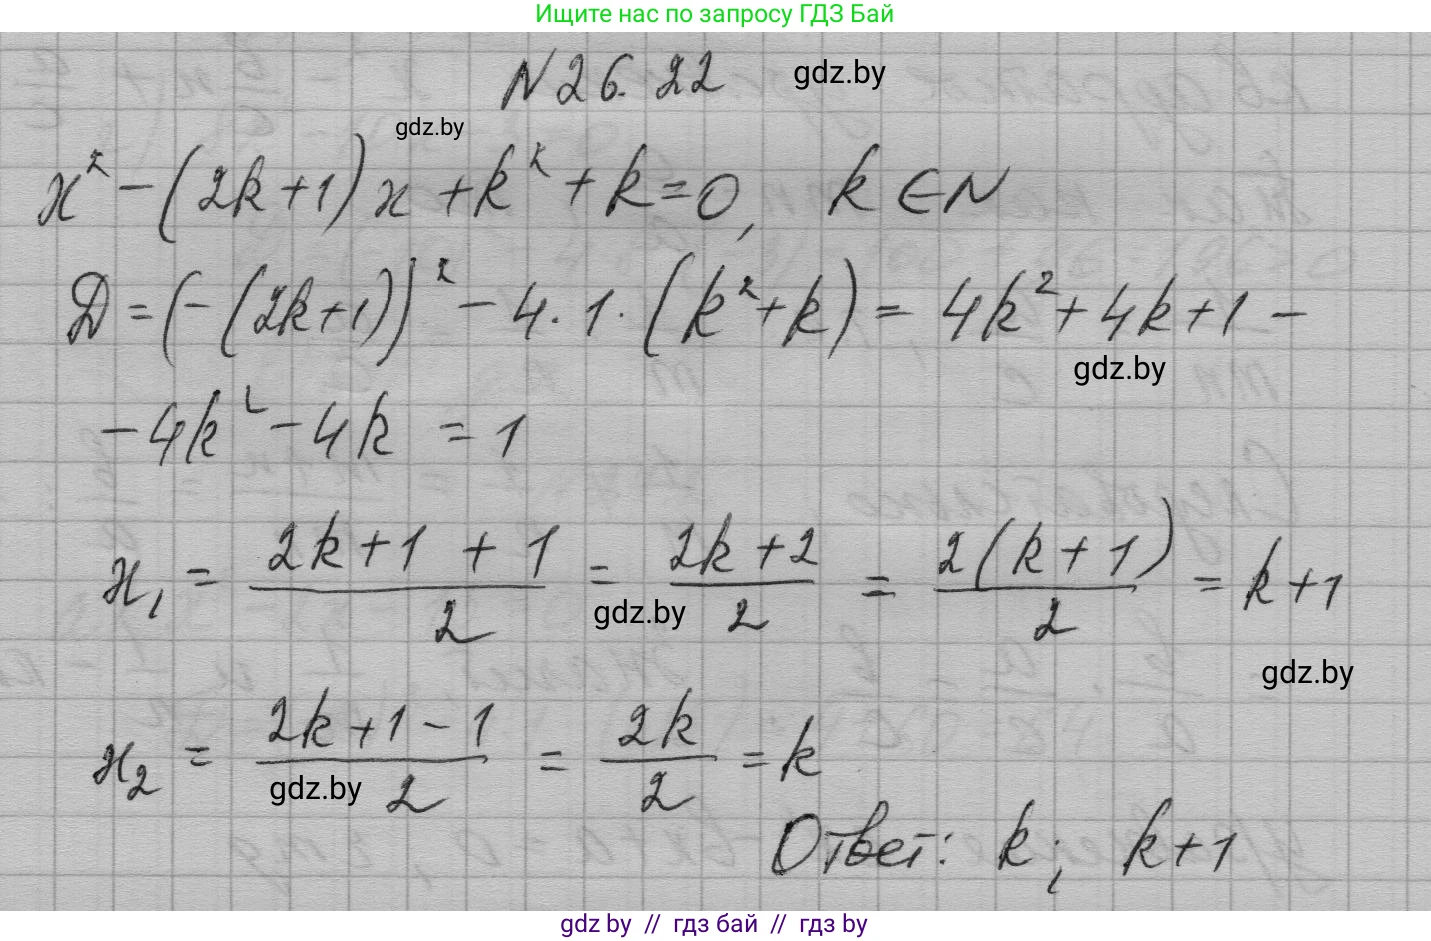 Ищите нас по запросу ГДЗ Бай
N 26.22 gdz.by
gdz.by
x² - (2k+1)x + k² + k = 0, k ∈ N
D = (-(2k+1))² - 4 · 1 · (k² + k) = 4k² + 4k + 1 -
gdz.by
- 4k² - 4k = 1
x₁ = (2k+1+1)/2 = (2k+2)/2 = (2(k+1))/2 = k+1
gdz.by
gdz.by
x₂ = (2k+1-1)/2 = (2k)/2 = k
gdz.by
Ответ: k; k+1
gdz.by // гдз бай // гдз by